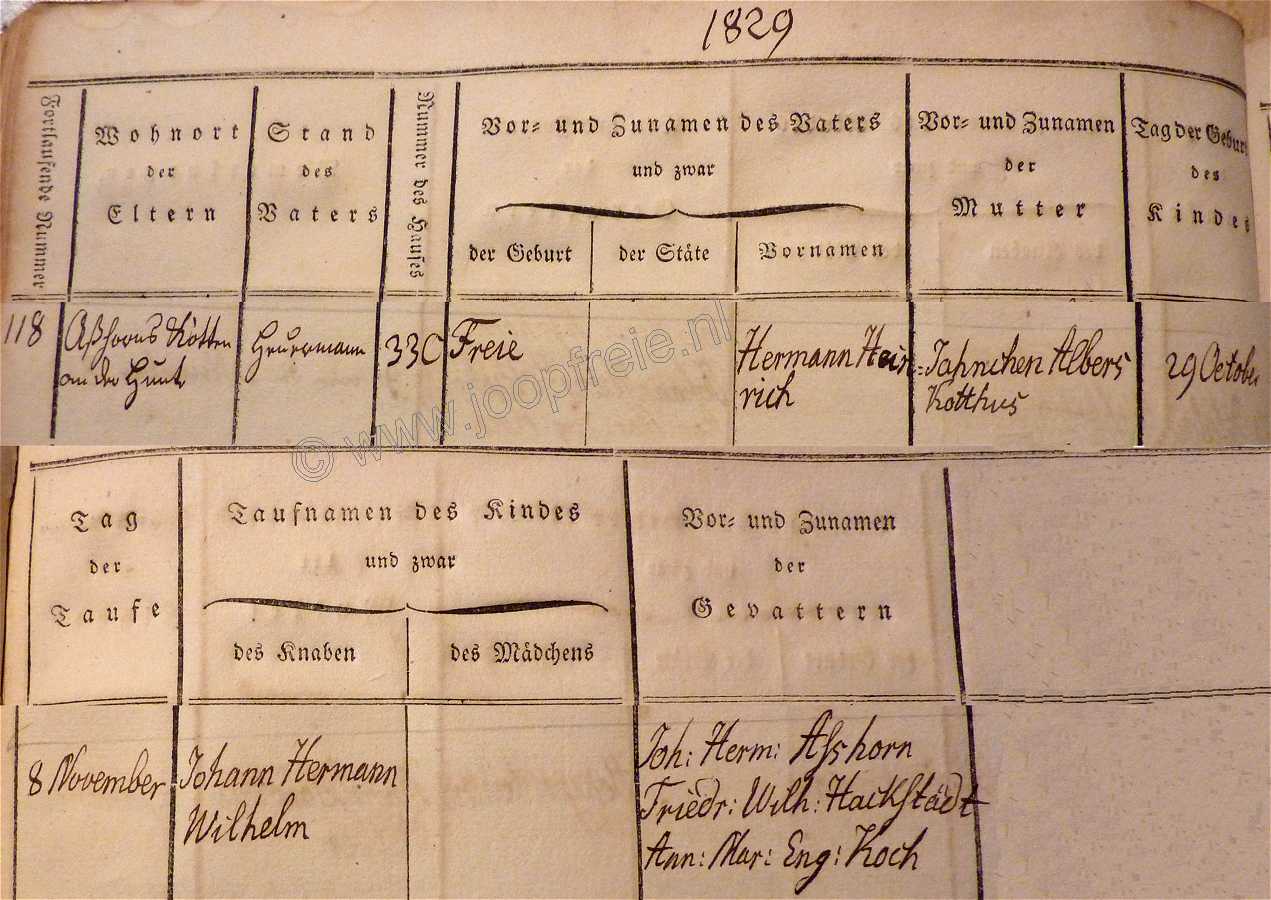 1829
Fortlaufende Nummer
Wohnort
der
Eltern
Stand
des
Vaters
Nummer des Hauses
Vor- und Zunamen des Vaters
und zwar
der Geburt
der Stäte
Vornamen
Vor- und Zunamen
der
Mutter
Tag der Geburt
des
Kindes
118
Aßhorns Kötten
an der Hunte
Heuermann
33C
Freie
Hermann Hein-
rich
Jahnchen Albers
Kotthus
29 October
© www.joopfreie.nl
Tag
der
Taufe
Taufnamen des Kindes
und zwar
des Knaben
des Mädchens
Vor- und Zunamen
der
Gevattern
8 November
Johann Hermann
Wilhelm
Joh: Herm: Asshorn
Friedr: Wilh: Hackstädt
Ann: Mar: Eng: Koch